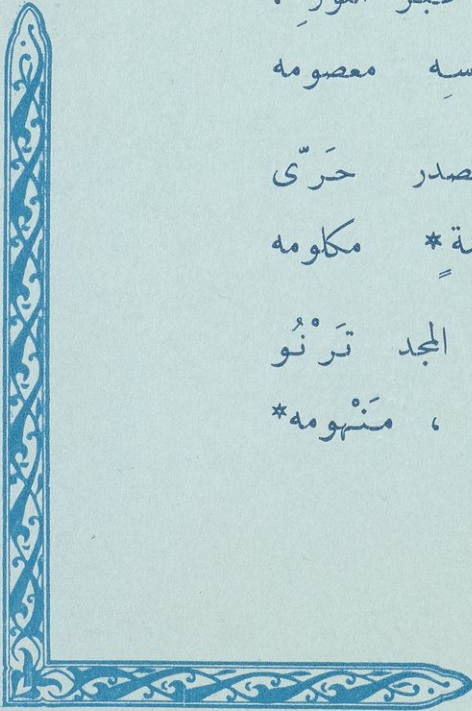 معصومه
حَرّى
* مكلومه
المجد تَرْنُو
، مَنْهومه*